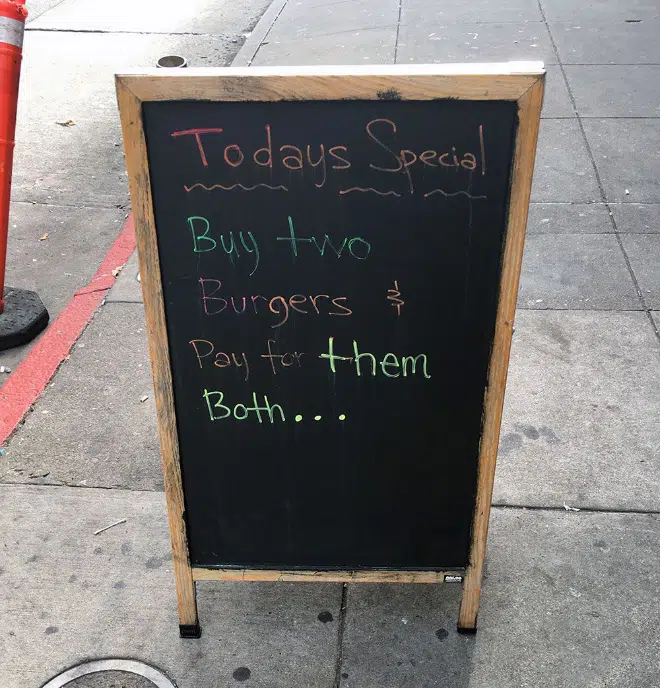 Todays Special
Buy two
Burgers &
Pay for them
Both...